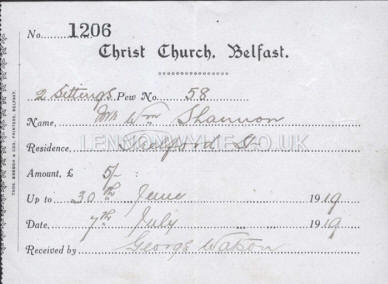 No. 1206
Christ Church, Belfast.
2 Sittings Pew No. 58
Name, Mr Wm Shannon
Residence,
Amount, £ 5/-
Up to 30th June 1919
Date, 7th July 1919
Received by George Watson